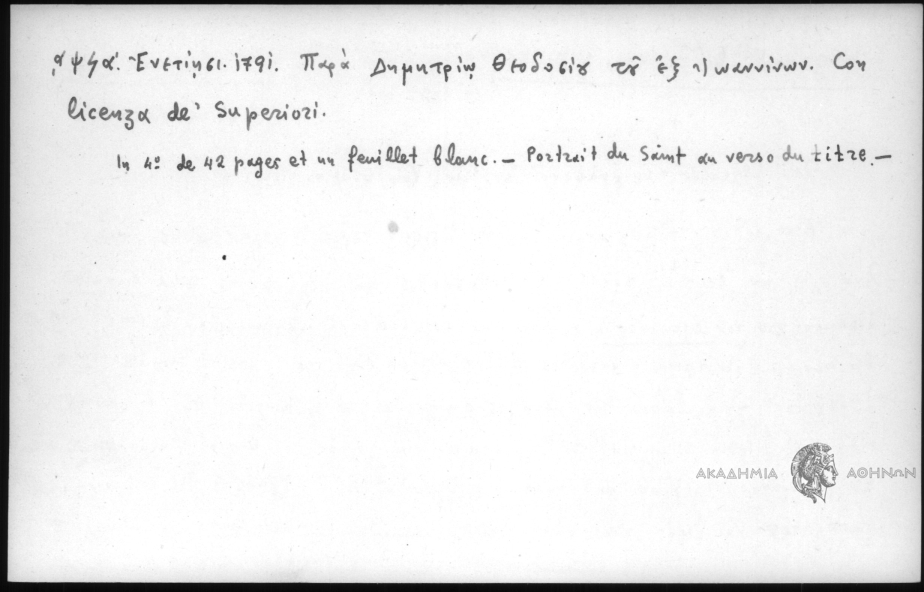 ͵αψϟα'. Ἐνετίησι. 1791. Παρὰ Δημητρίῳ Θεοδοσίȣ τȣ͂ ἐξ Ἰωαννίνων. Con
licenza de' Superiori.
In 4º de 42 pages et un feuillet blanc. – Portrait du Saint au verso du titre. –
ΑΚΑΔΗΜΙΑ ΑΘΗΝΩΝ